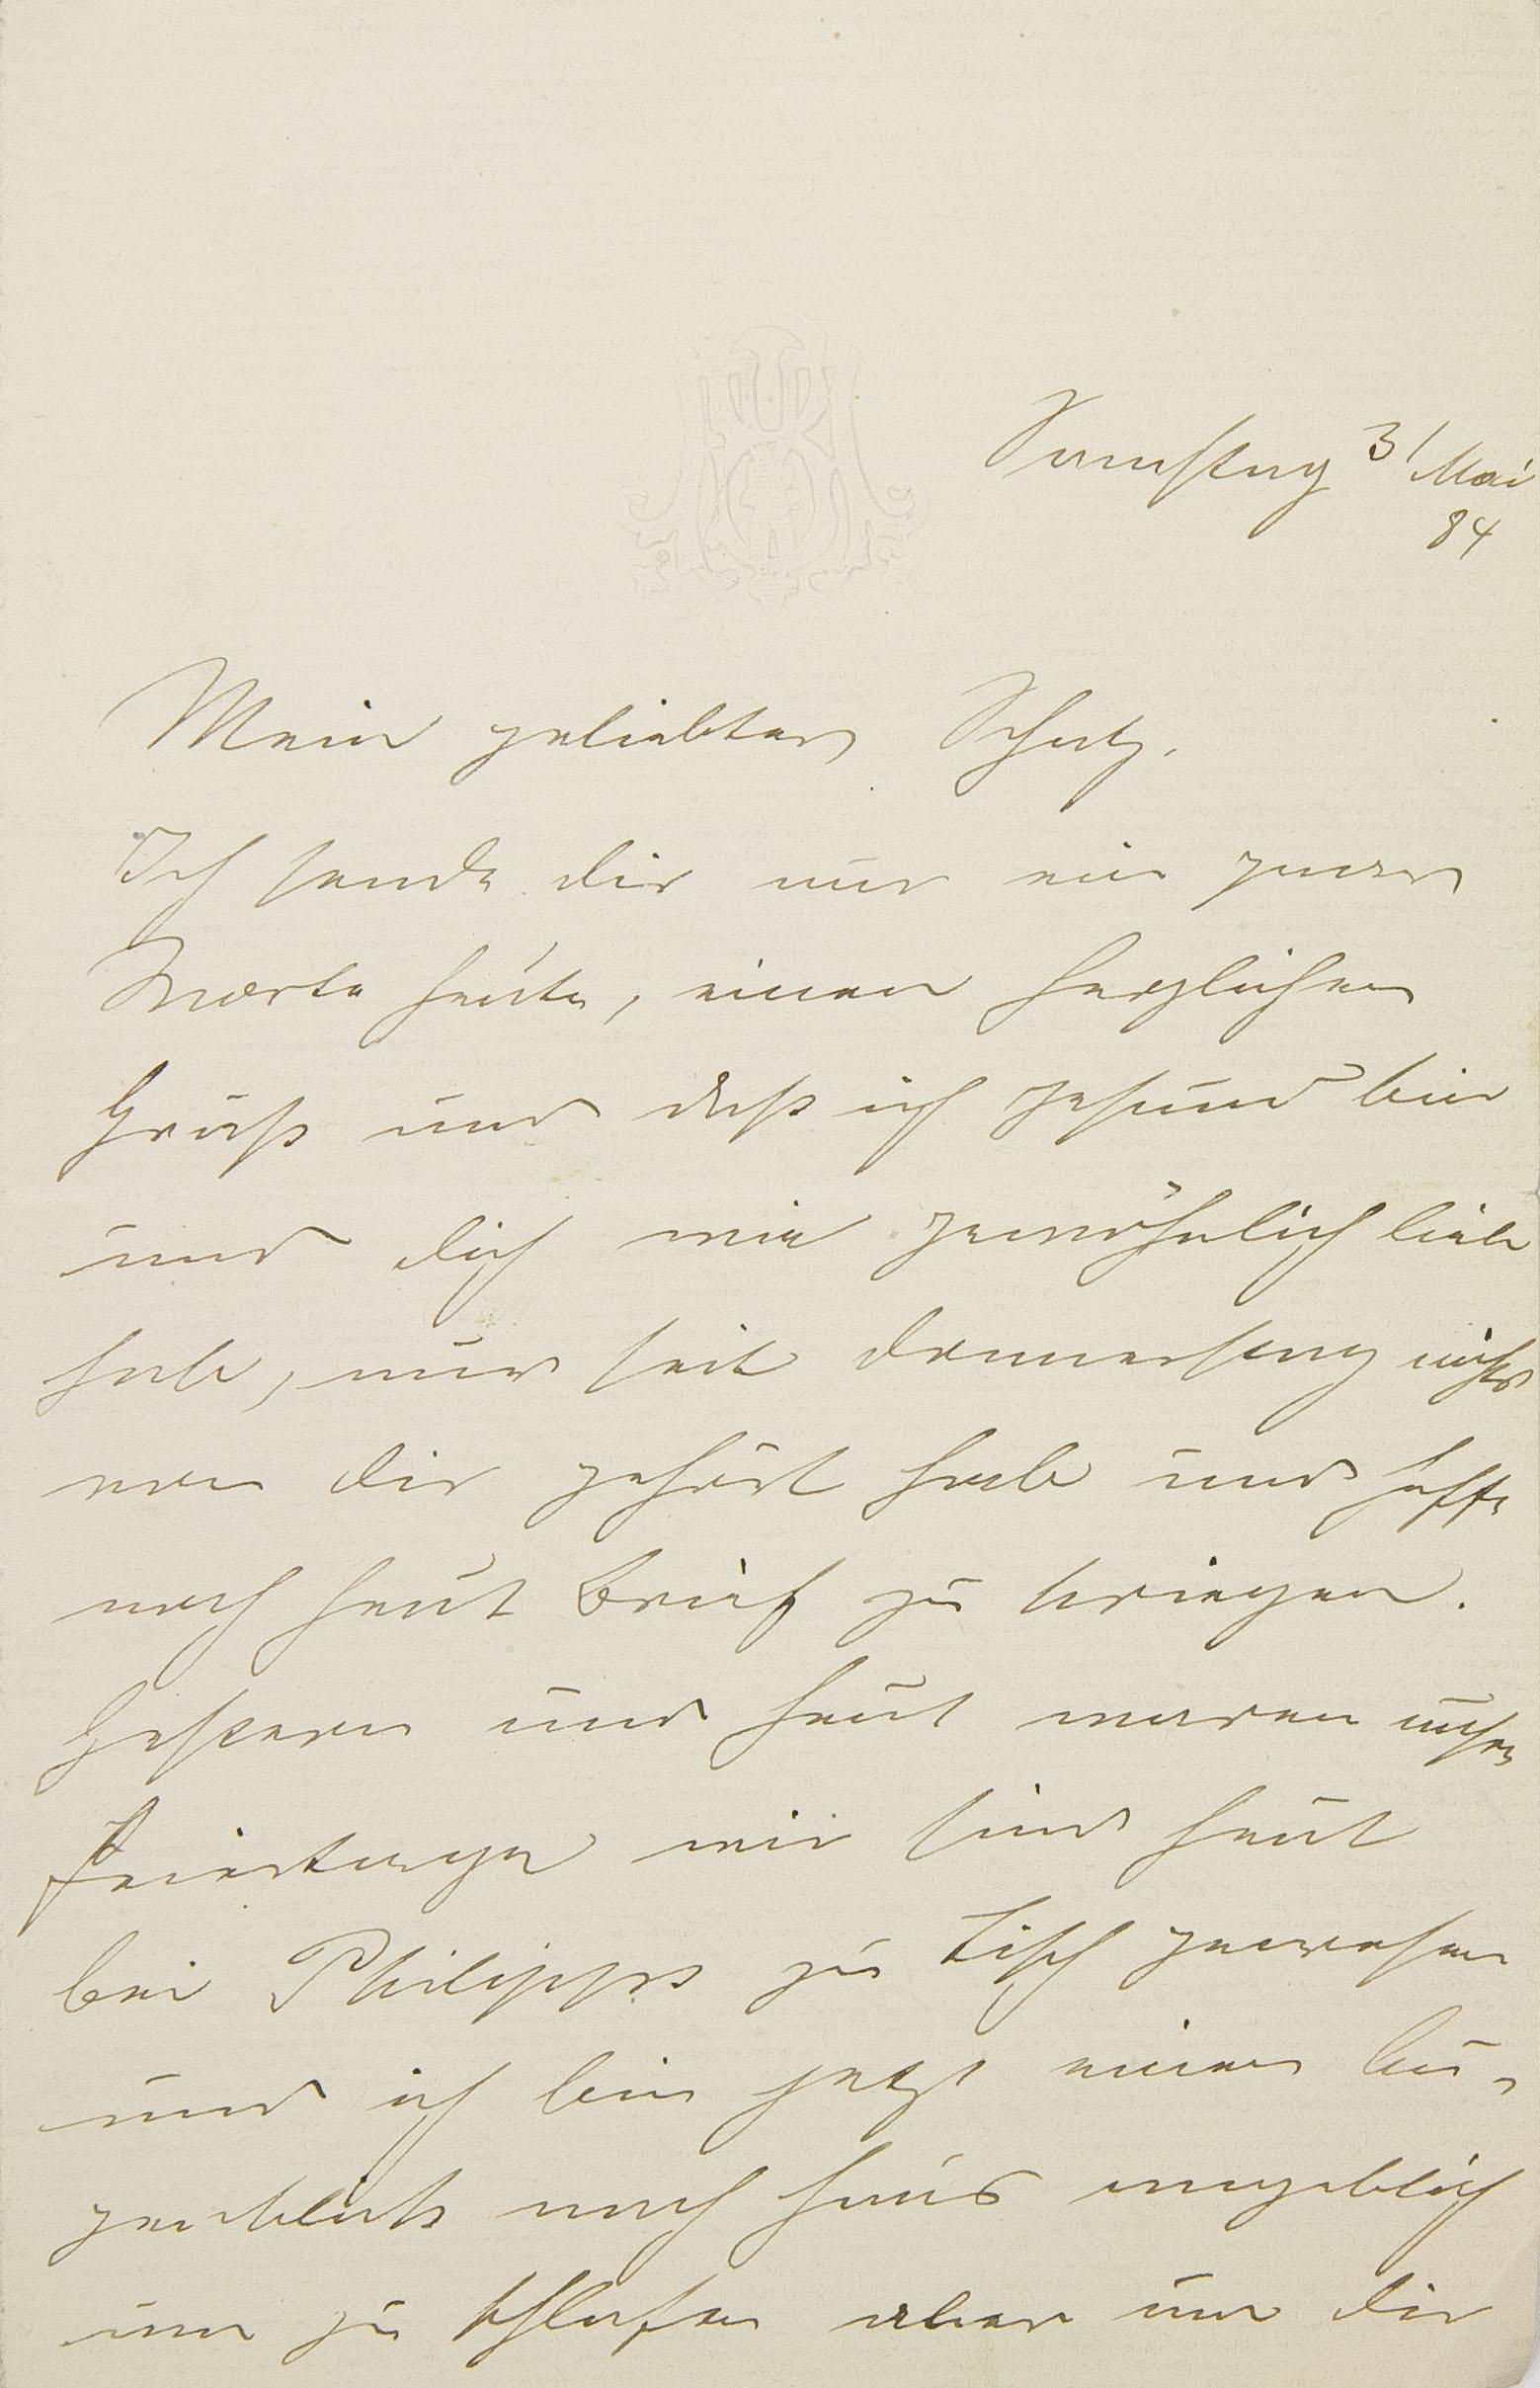 Samstag 31 Mai
84
Mein geliebter Schatz.
Ich sende dir nur ein paar
Worte heute, einen herzlichen
Gruß und daß ich gesund bin
und dich wie gewöhnlich lieb
habe, nur seit Donnerstag nichts
von dir gehört habe und hoffe
noch heut Brief zu kriegen.
Gestern und heut waren unsere
Feiertage wir sind heut
bei Philipps zu Tisch gewesen
und ich bin jetzt einen Au-
genblick nach Haus angeblich
um zu schlafen aber um dir